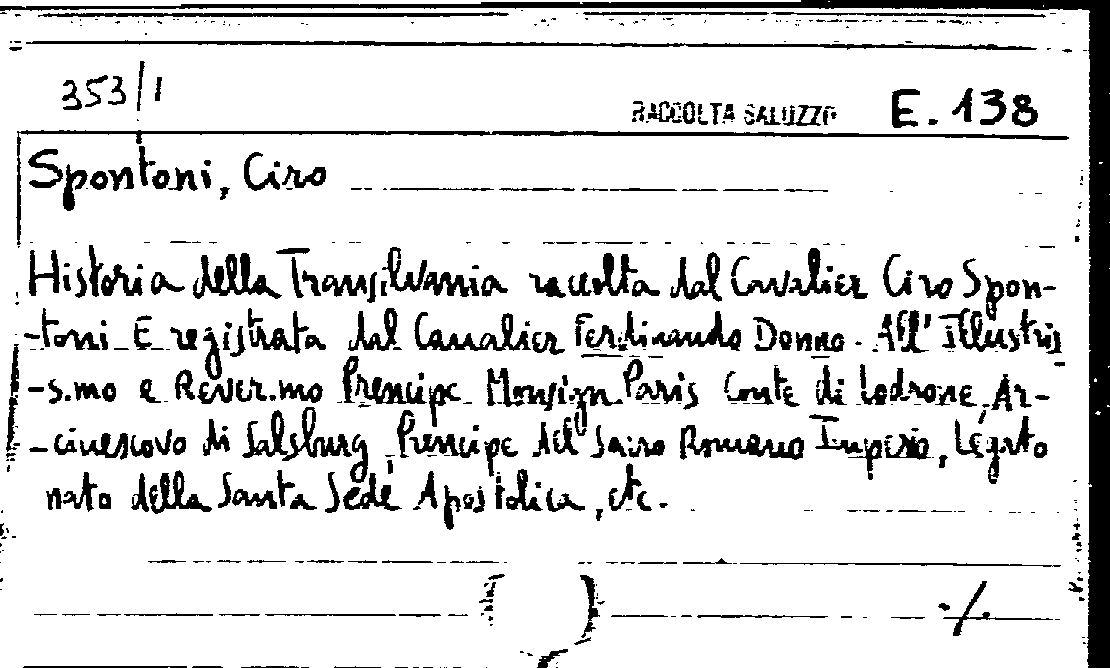 353/1
RACCOLTA SALUZZO E. 138
Spontoni, Ciro
Historia della Transilvania raccolta dal Cavalier Ciro Spon-
-toni E registrata dal Caualier Ferdinando Donno. All' Illustris
-s.mo e Rever.mo Prencipe Monsign. Paris Conte di Lodrone, Ar-
-civescovo di Salsburg, Prencipe del Sacro Romano Imperio, Legato
nato della Santa Sede Apostolica, etc.
./.